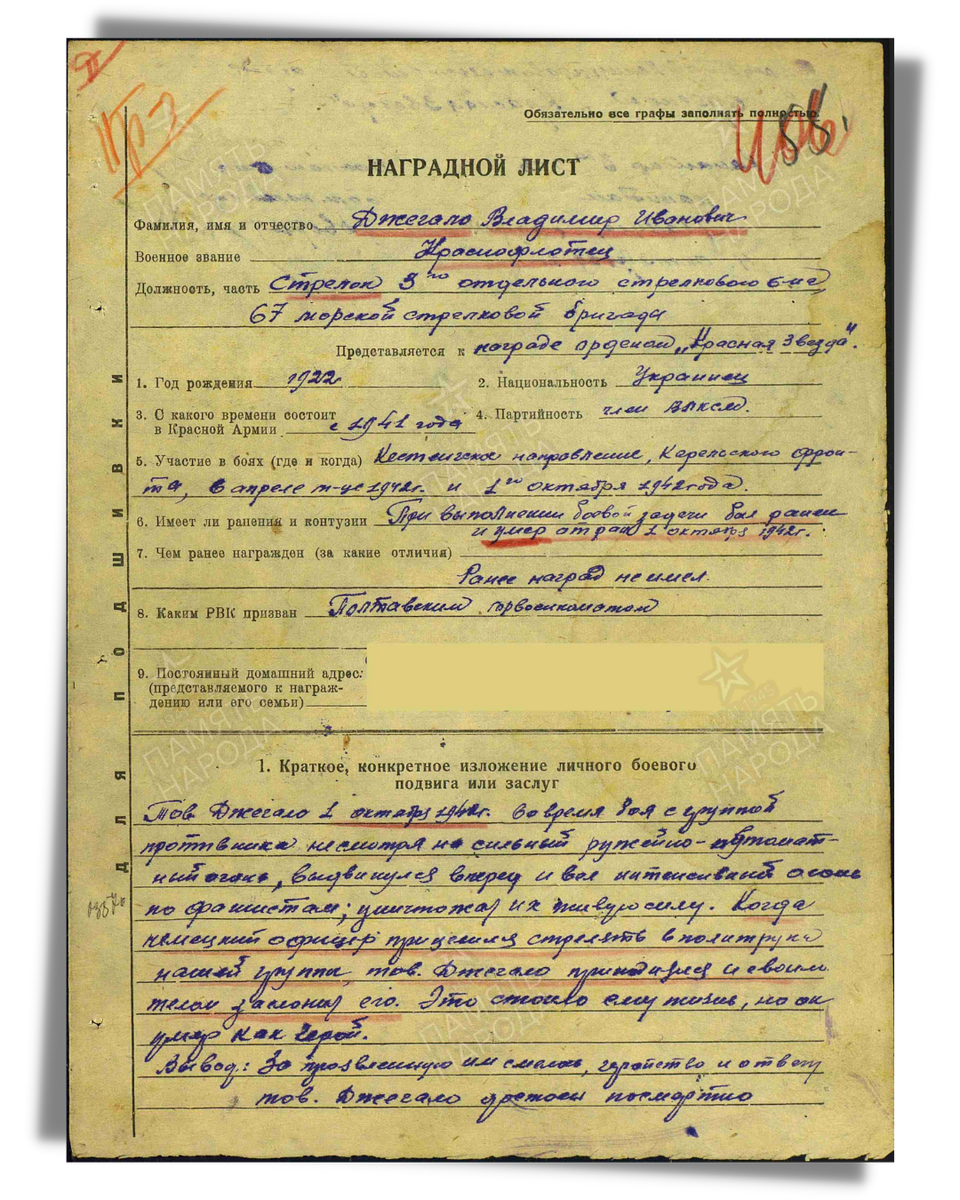 II
Пр-2
Обязательно все графы заполнять полностью.
58.
НАГРАДНОЙ ЛИСТ
Фамилия, имя и отчество Джегало Владимир Иванович
Военное звание Краснофлотец
Должность, часть Стрелок 3го отдельного стрелкового б-на,
67 морской стрелковой бригады
Представляется к награде орденом „Красная Звезда".
1. Год рождения 1922г. 2. Национальность Украинец
3. С какого времени состоит в Красной Армии с 1941 года 4. Партийность член ВЛКСМ.
5. Участие в боях (где и когда) Кестеньгское направление, Карельского фрон-
та, в апреле м-це 1942г. и 1го октября 1942 года.
6. Имеет ли ранения и контузии При выполнении боевой задачи был ранен
и умер от ран 1 октября 1942г.
7. Чем ранее награжден (за какие отличия)
Ранее наград не имел.
8. Каким РВК призван Полтавским горвоенкоматом
9. Постоянный домашний адрес:
(представляемого к награж-
дению или его семьи)
1. Краткое, конкретное изложение личного боевого
подвига или заслуг
Тов Джегало 1 октября 1942г. во время боя с группой
противника несмотря на сильный ружейно-автомат-
ный огонь, выдвинулся вперед и вел интенсивный огонь
по фашистам; уничтожал их живую силу. Когда
немецкий офицер прицелился стрелять в политрука
нашей группы, тов. Джегало приподнялся и своим
телом заслонил его. Это стоило ему жизнь, но он
умер как герой.
Вывод: За проявленную им смелость, геройство и отвагу
тов. Джегало достоин посмертно
ДЛЯ ПОДШИВКИ
ПАМЯТЬ НАРОДА